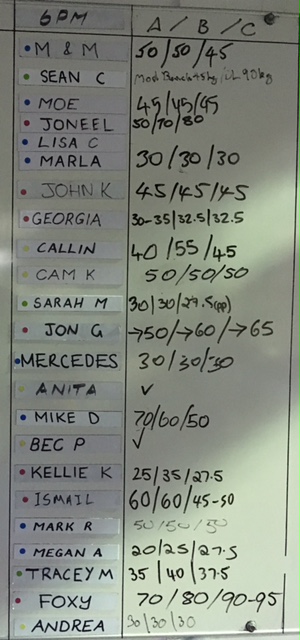 6PM A / B / C
M & M 50/50/45
SEAN C Mod Bench 45kg / DL 90kg
MOE 45/45/45
JONEEL 50/70/80
LISA C
MARLA 30/30/30
JOHN K 45/45/45
GEORGIA 30-35/32.5/32.5
CALLIN 40/55/45
CAM K 50/50/50
SARAH M 30/30/27.5(pp)
JON G →50/→60/→65
MERCEDES 30/30/30
ANITA ✓
MIKE D 70/60/50
BEC P ✓
KELLIE K 25/35/27.5
ISMAIL 60/60/45-50
MARK R 50/50/50
MEGAN A 20/25/27.5
TRACEY M 35/40/37.5
FOXY 70/80/90-95
ANDREA 30/30/30